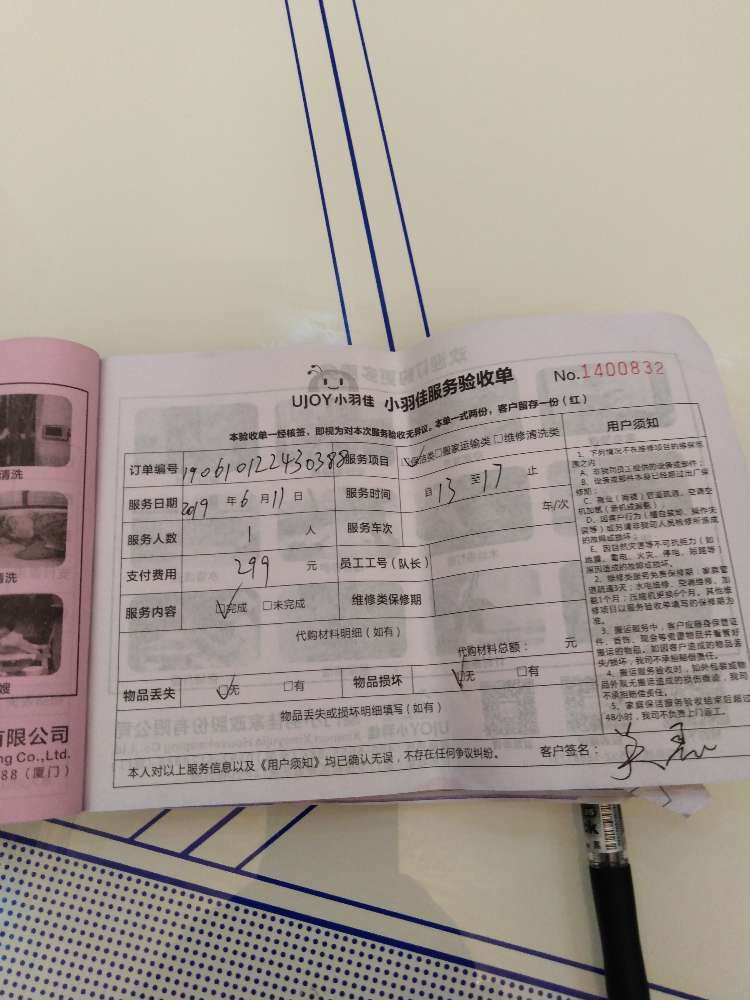 UJOY小羽佳 小羽佳服务验收单 No.1400832
本验收单一经核签，即视为对本次服务验收无异议。本单一式两份，客户留存一份（红）
订单编号 190610122430388 服务项目 ☑保洁类□搬家运输类□维修清洗类
服务日期 2019年6月11日 服务时间 自13至17止
服务人数 1人 服务车次 年/次
支付费用 299元 员工工号（队长）
服务内容 ☑完成 □未完成 维修类保修期
代购材料明细（如有）
代购材料总额： 元
物品丢失 ☑无 □有 物品损坏 ☑无 □有
物品丢失或损坏明细填写（如有）
本人对以上服务信息以及《用户须知》均已确认无误，不存在任何争议纠纷。 客户签名：
用户须知
1、下列情况不在维修项目的维保范
围之内
A、非我司员工提供的设备或部件；
B、设备或部件本身已经超过出厂保
修期；
C、商业（商铺）管道疏通、空调空
机加氟（新机或漏氟）；
D、因客户行为（擅自装卸、操作失
误等）或另请非我司人员检修所造成
的故障或损坏；
E、因自然灾害等不可抗能力（如
地震、雷电、火灾、停电、短路等）
原因造成的故障或损坏。
2、维修类服务免费保修期：家庭管
道疏通3天；水电维修、空调维修、加
氟1个月；压缩机更换6个月。其他维
修项目以服务验收单填写的保修期为
准。
3、搬运服务中，客户应随身保管证
件、首饰、现金等贵重物品并看管好
搬运的物品。如因客户造成的物品丢
失/损坏，我司不承担赔偿责任。
4、搬运服务验收时，如外包装或物
品外观无搬运造成的损伤痕迹，我司
不承担赔偿责任。
5、家庭保洁服务验收结束后超过
48小时，我司不负责上门返工。
清洗
清洗
嫂
有限公司
ng Co.,Ltd.
88（厦门）